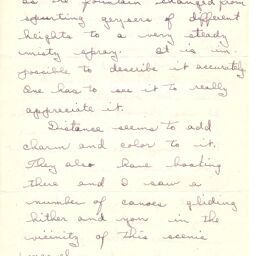 as the fountain changed from
spurting geysers of different
heights to a very steady
misty spray. It is im-
possible to describe it accurately.
One has to see it to really
appreciate it.
Distance seems to add
charm and color to it.
They also have boating
there and I saw a
number of canoes gliding
hither and yon in the
vicinity of this scenic